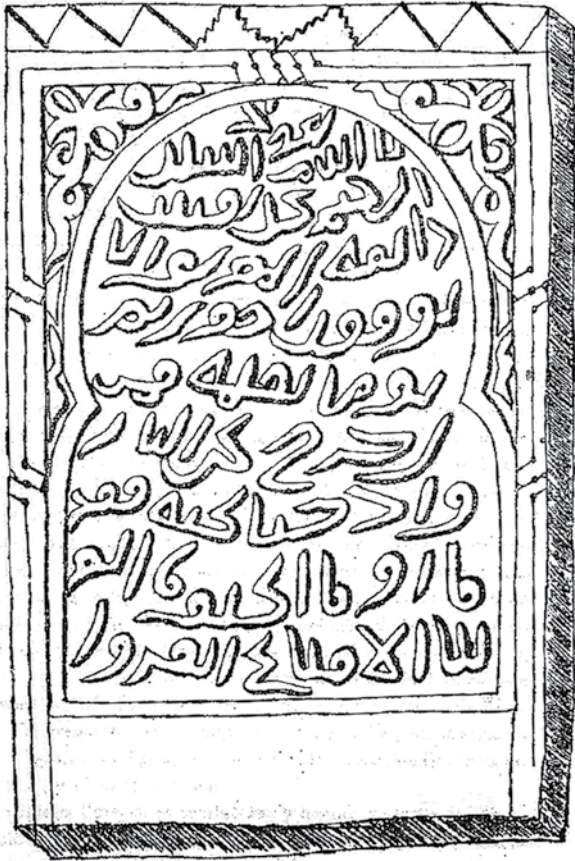 الرحيم كل نفس
ذايقه الموت وانما
توفون اجوركم
يوم القيمه فمن
زحزح عن النار
وادخل الجنه فقد
فاز وما الحيوة الد
نيا الا متاع الغرور